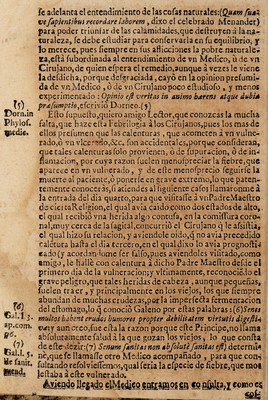 se adelanta el entendimiento de las cosas naturales: (Quam sua-
ve sapientibus recordare laborem, dixo el celebrado Menander)
para poder triunfar de las calamidades, que destruyen à la na-
turaleza, se debe estudiar para conservarla en su equilibrio, y
lo merece, pues siempre en sus aflicciones la pobre naturale-
za, està subordinada al entendimiento de vn Medico, ù de vn
Cirujano, de quien espera el remedio, aunque à vezes le viene
la desdicha, porque desgraciada, cayò en la opinion presumi-
da de vn Medico, ò de vn Cirujano poco estudioso, y menos
experimentado: Opinio est veritas in animo hærens atque dubia
præsumptio, escriviò Dorneo. (5)
(5)
Dorn. in
Phylos.
medic.
Esto supuesto, quiero amigo Lector, que conozcas la mucha
falta, que haze esta Febrilogia à los Cirujanos, pues los mas de
ellos presumen que las calenturas, que acometen à vn vulne-
rado, ò vn vlcerado, &c. son accidentales, porque consideran,
que tales calenturas solo provienen, ò de supuracion, ò de in-
flamacion, por cuya razon suelen menospreciar la fiebre, que
aparece en vn vulnerado, y de este menosprecio seguirse la
muerte al paciente, ò ponerle en grave extremo, lo que paten-
temente conoceràs, si atiendes al siguiente caso: llamaronme à
la entrada del dia quarto, para que visitasse à vn Padre Maestro
de cierta Religion, el qual avia caido como dos estados de alto,
el qual recibiò vna herida algo contusa, en la comissura coro-
nal, muy cerca de la sagital, concurriò el Cirujano q̃ le asistia,
el qual hizo su relacion, y aviendole oido, q̃ no avia precedido
calẽtura hasta el dia tercero, en el qual dixo lo avia prognosti-
cado (y acordòme ser falso, pues aviendoles visitado, como
amigo, le hallè con calentura à dicho Padre Maestro desde el
primero dia de la vulneracion y vltimamente, reconociendo el
grave peligro, que tales heridas de cabeza, aunque pequeñas,
suelen traer, y principalmente en los viejos, los que siempre
abundan de muchas crudezas, por la imperfecta fermentacion
del estomago, lo q̃ conociò Galeno por estas palabras: (6) Senes
multos habent crudos humores propter debilitatem virtutis digesti-
væ y aun creo, fue esta la razon porque este Principe, no llama
absolutamente salud à la que gozan los viejos, lo que consta
de este dezir: (7) Senum sanitas non absolute sanitas est) determi-
nè, que se llamasse otro Medico acompañado, para que con-
sultando resolviessemos, qual seria la especie de fiebre, que mo-
lestaba à este vulnerado.
(6)
Gal. l. 3.
96.
(7)
Gal. l. 5.
de sanit.
Aviendo llegado el Medico entramos en consulta, y como es